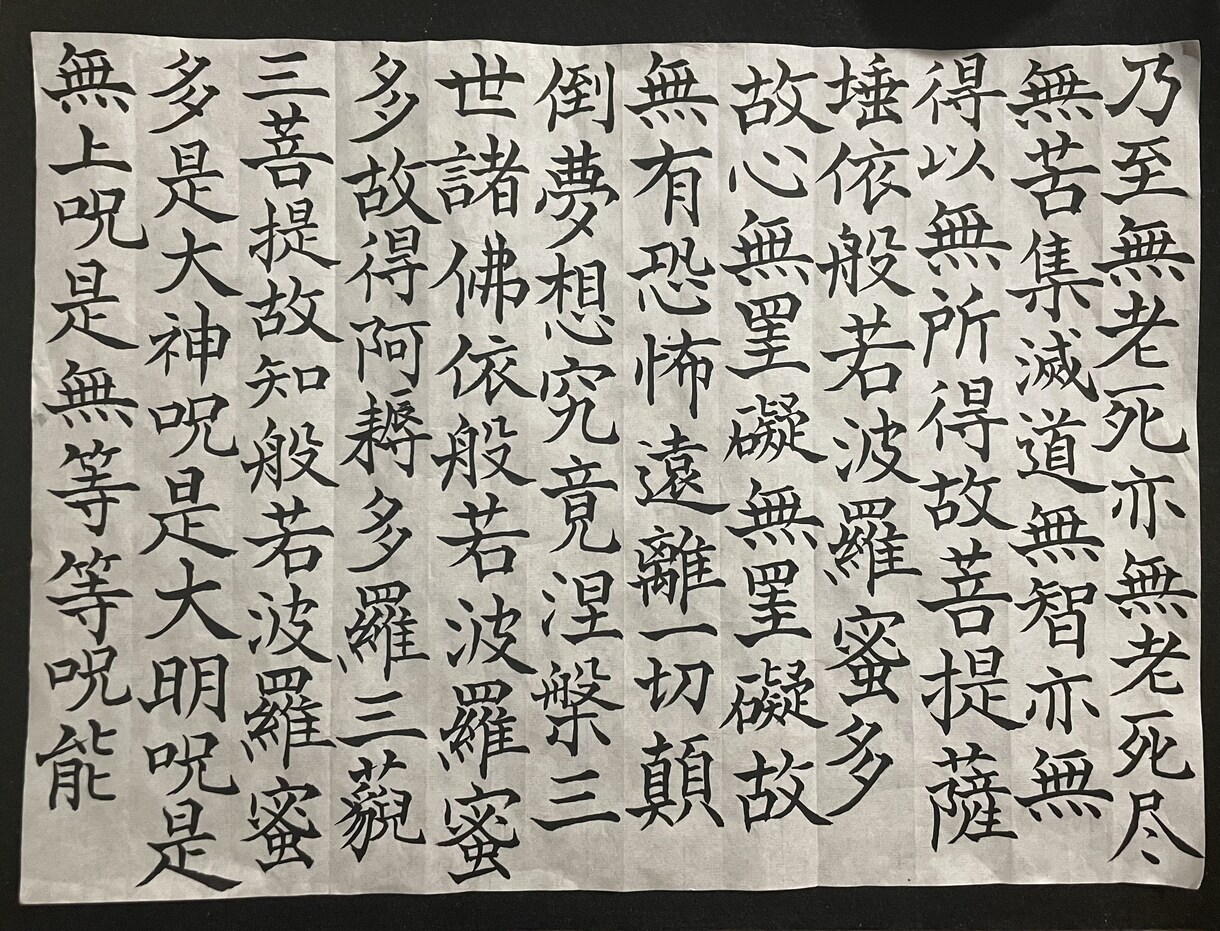 乃至無老死亦無老死尽
無苦集滅道無智亦無
得以無所得故菩提薩
埵依般若波羅蜜多
故心無罣礙無罣礙故
無有恐怖遠離一切顛
倒夢想究竟涅槃三
世諸佛依般若波羅蜜
多故得阿耨多羅三藐
三菩提故知般若波羅蜜
多是大神呪是大明呪是
無上呪是無等等呪能